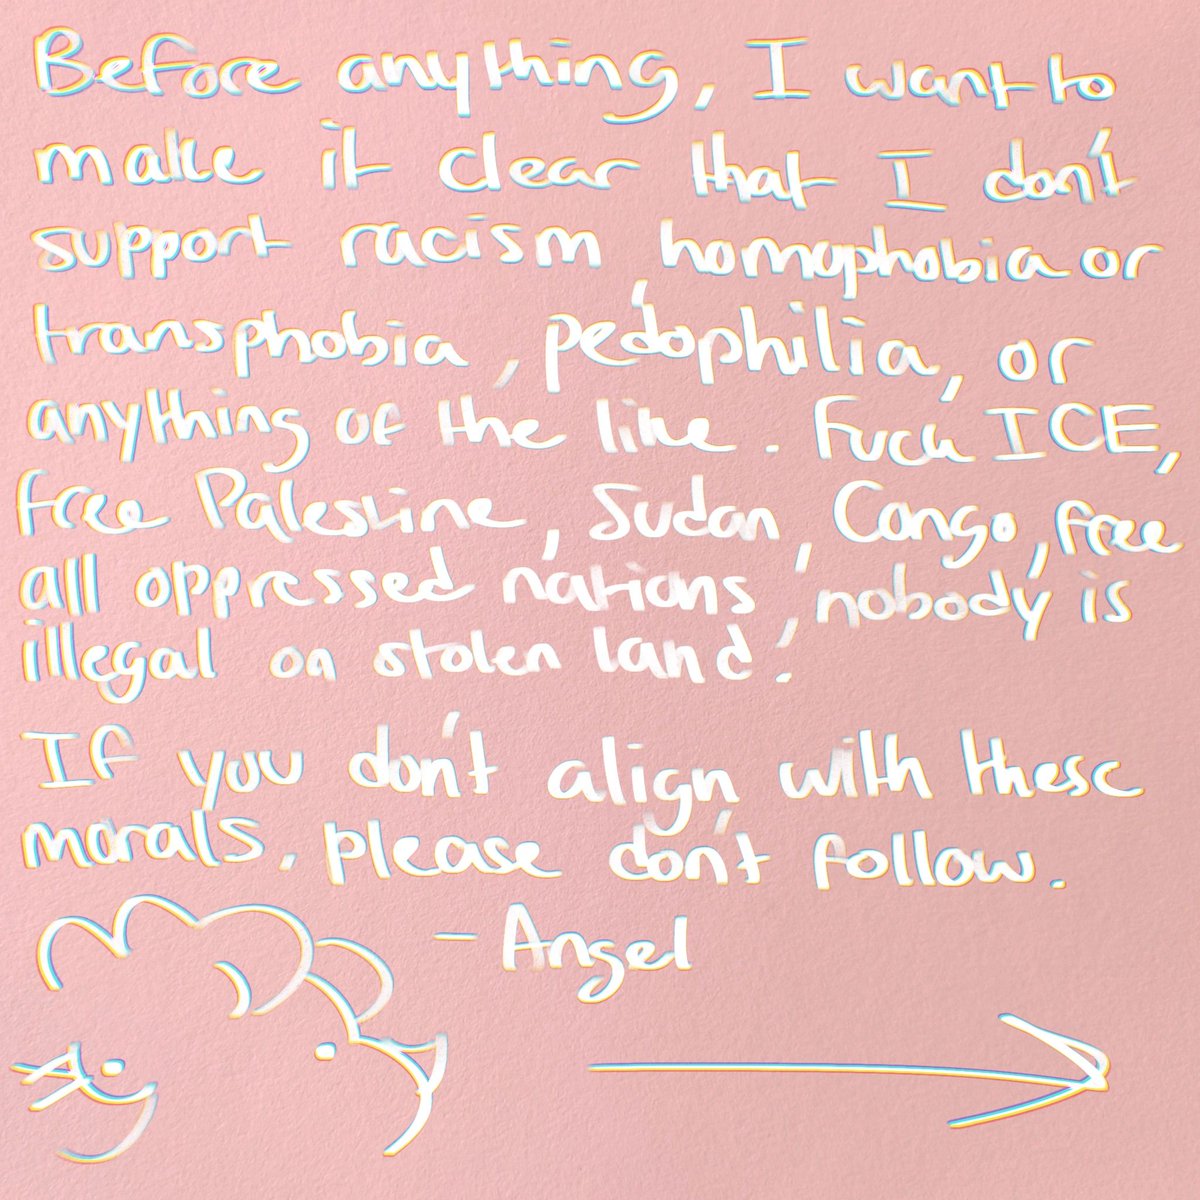 Before anything, I want to
make it clear that I don't
support racism, homophobia or
transphobia, pedophilia, or
anything of the like. Fuck ICE,
free Palestine, Sudan, Congo, free
all oppressed nations, nobody is
illegal on stolen land!
If you don't align with these
morals, please don't follow.
- Angel